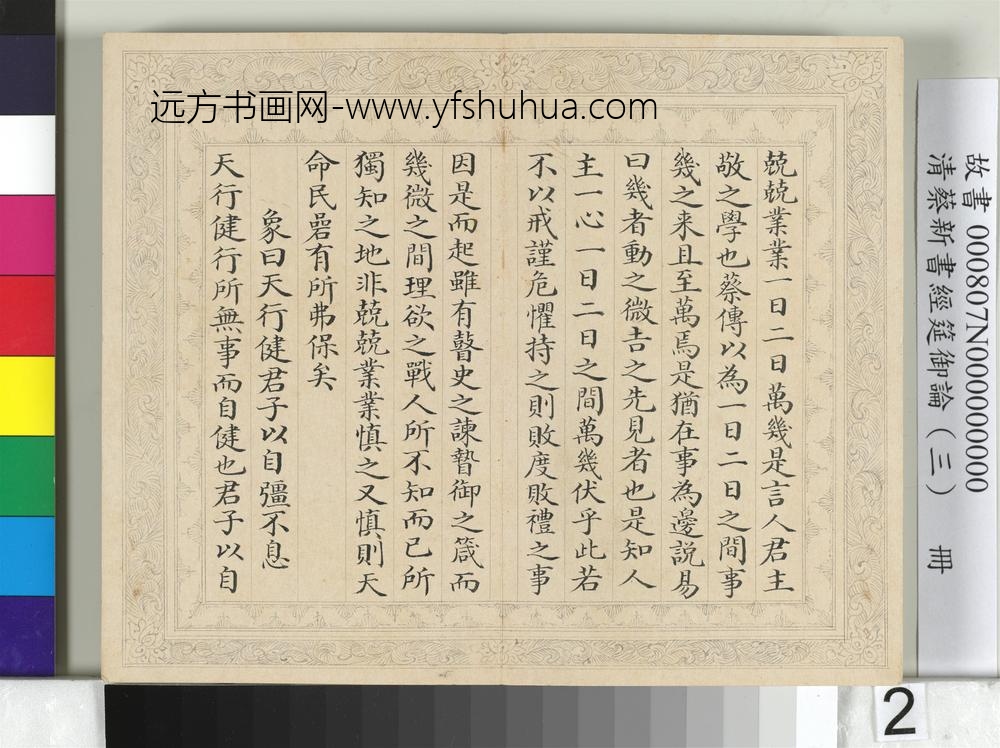 远方书画网-www.yfshuhua.com
兢兢業業一日二日萬幾是言人君主
敬之學也蔡傳以為一日二日之間事
幾之来且至萬焉是猶在事為邊説易
曰幾者動之微吉之先見者也是知人
主一心一日二日之間萬幾伏乎此若
不以戒謹危懼持之則敗度敗禮之事
因是而起雖有瞽史之諫暬御之箴而
幾微之間理欲之戰人所不知而己所
獨知之地非兢兢業業慎之又慎則天
命民碞有所弗保矣
象曰天行健君子以自彊不息
天行健行所無事而自健也君子以自
故書 000807N000000000
清蔡新書經筵御論（三） 冊
2